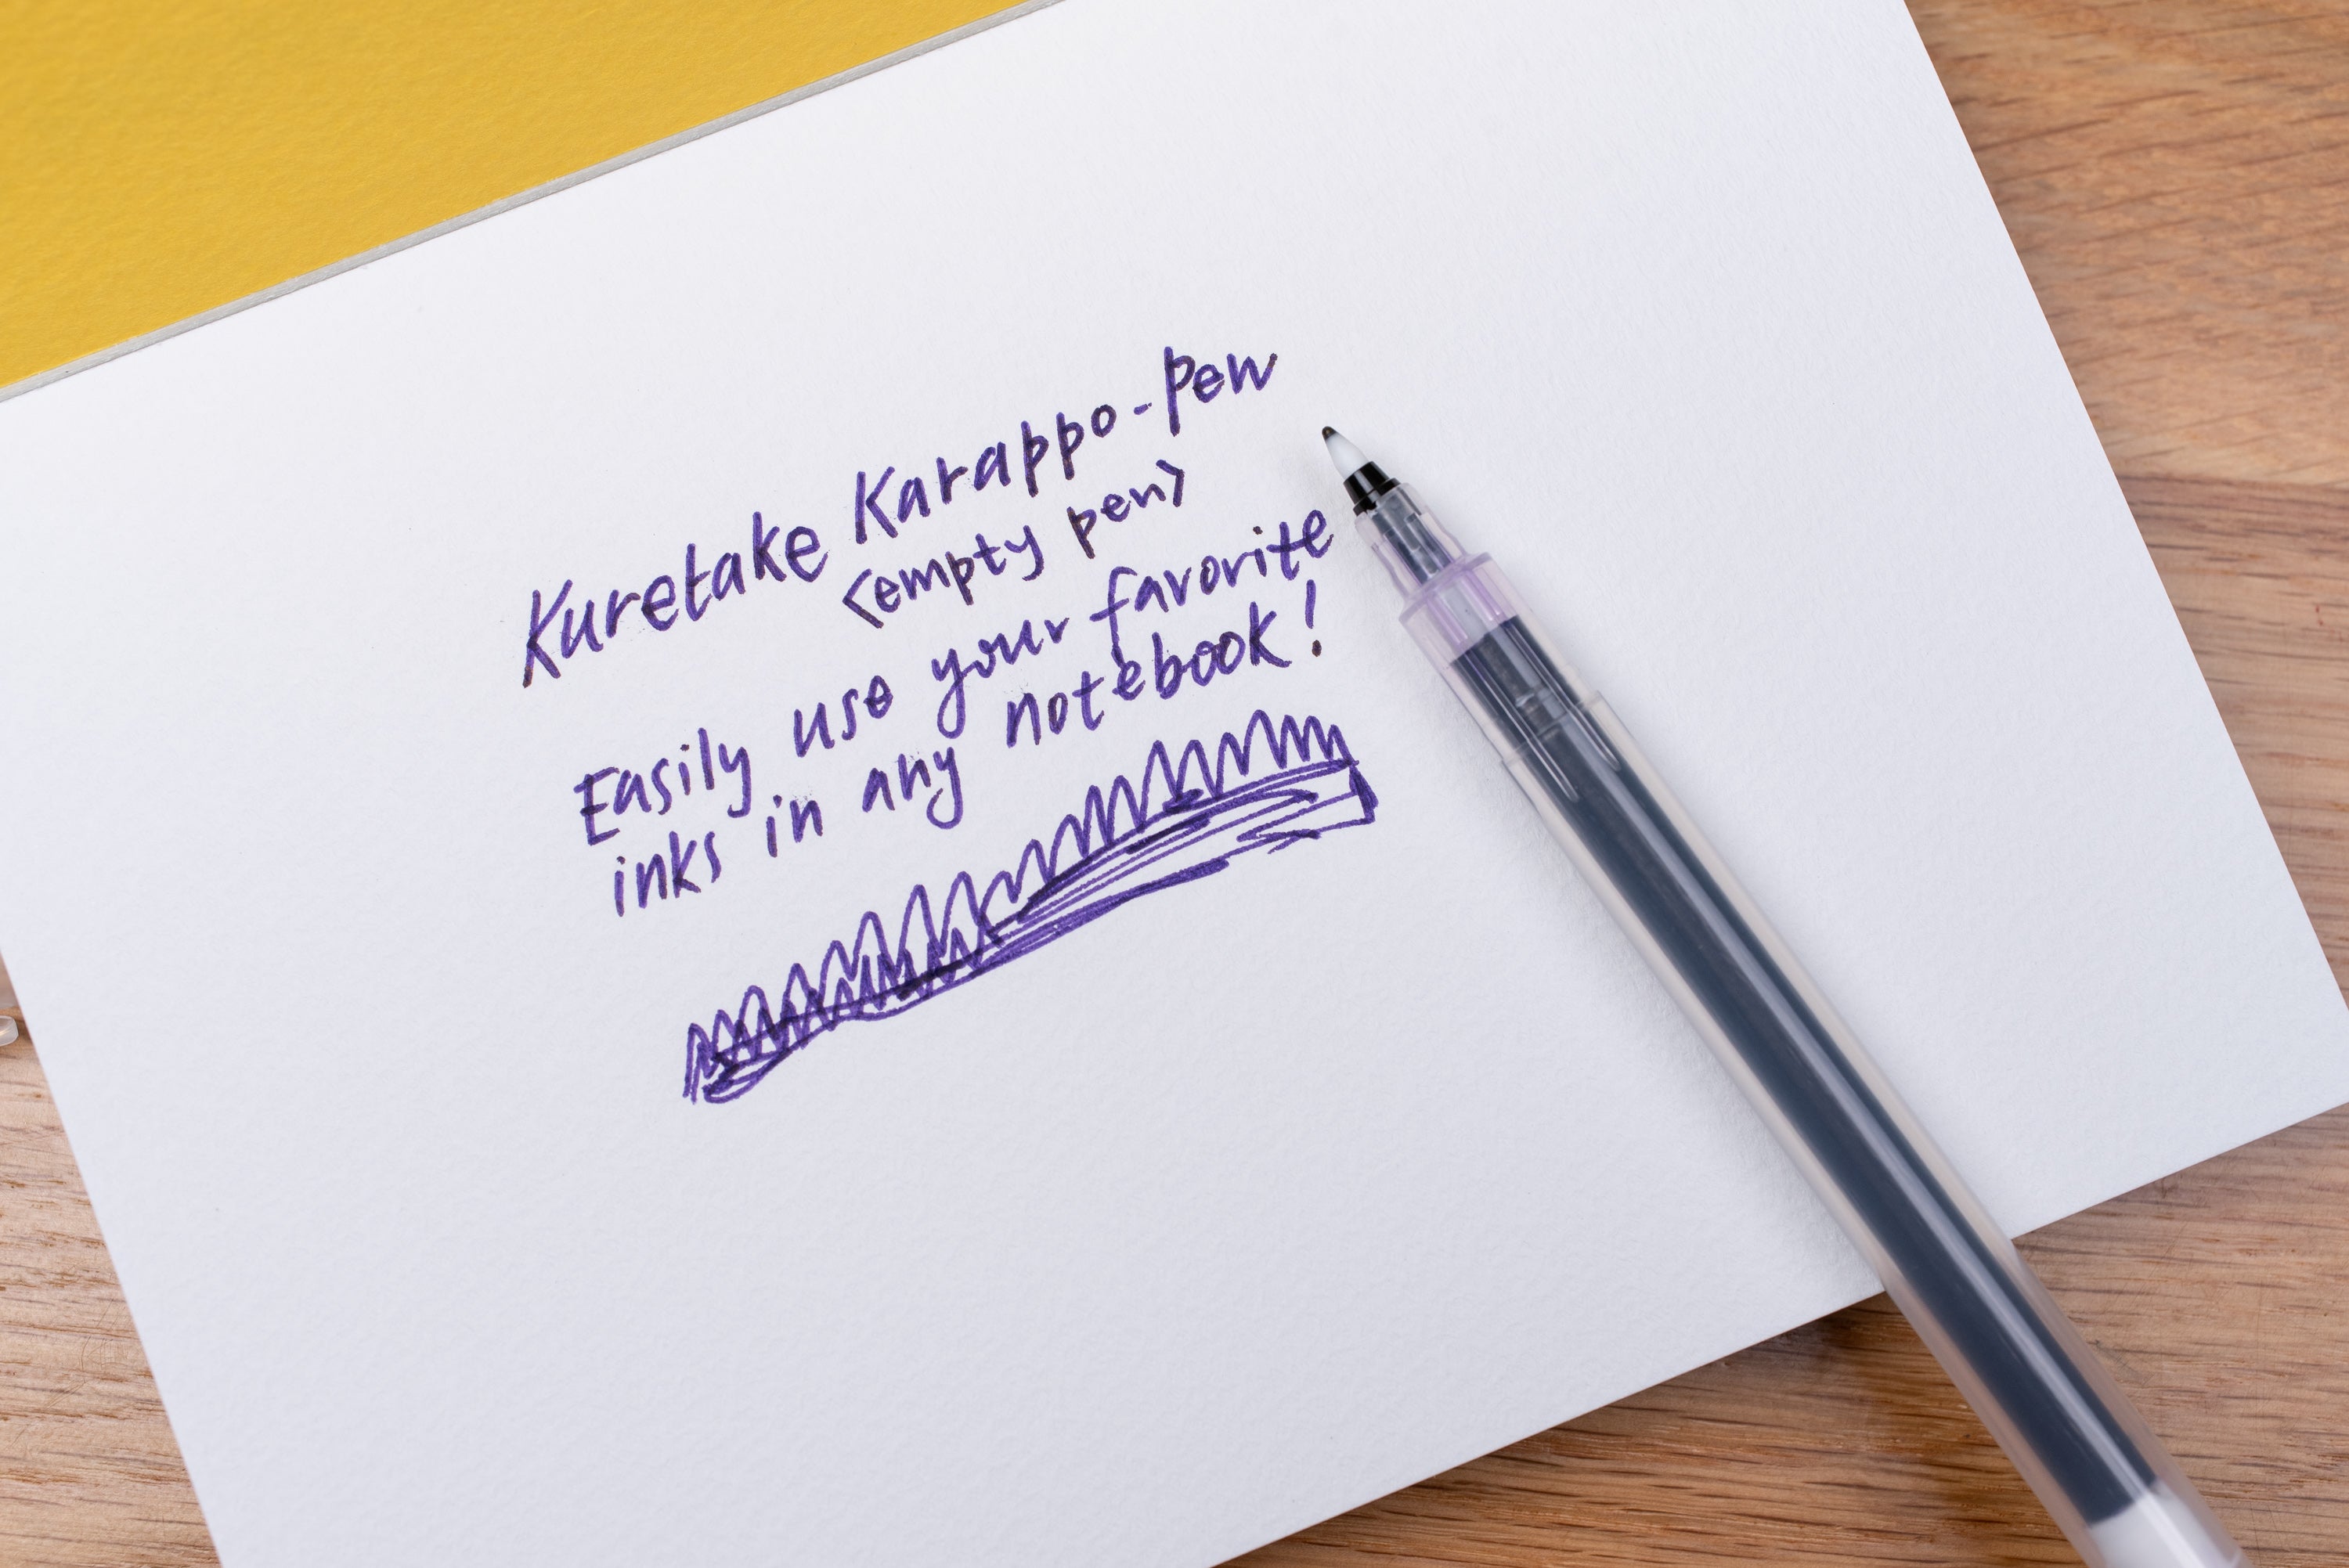 Kuretake Karappo-pen
<empty pen>
Easily use your favorite
inks in any notebook!